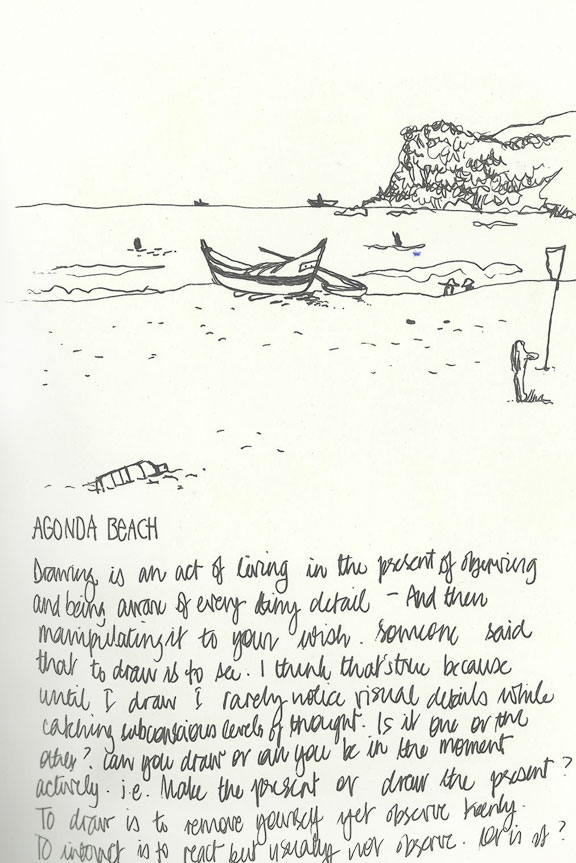 AGONDA BEACH
Drawing is an act of living in the present of observing
and being aware of every tiny detail - And then
manipulating it to your wish. Someone said
that to draw is to see. I think that's true because
until I draw I rarely notice visual details while
catching subconscious levels of thought. Is it one or the
other? Can you draw or can you be in the moment
actively. i.e. Make the present or draw the present?
To draw is to remove yourself yet observe keenly.
To interact is to react but usually not observe. Or is it?